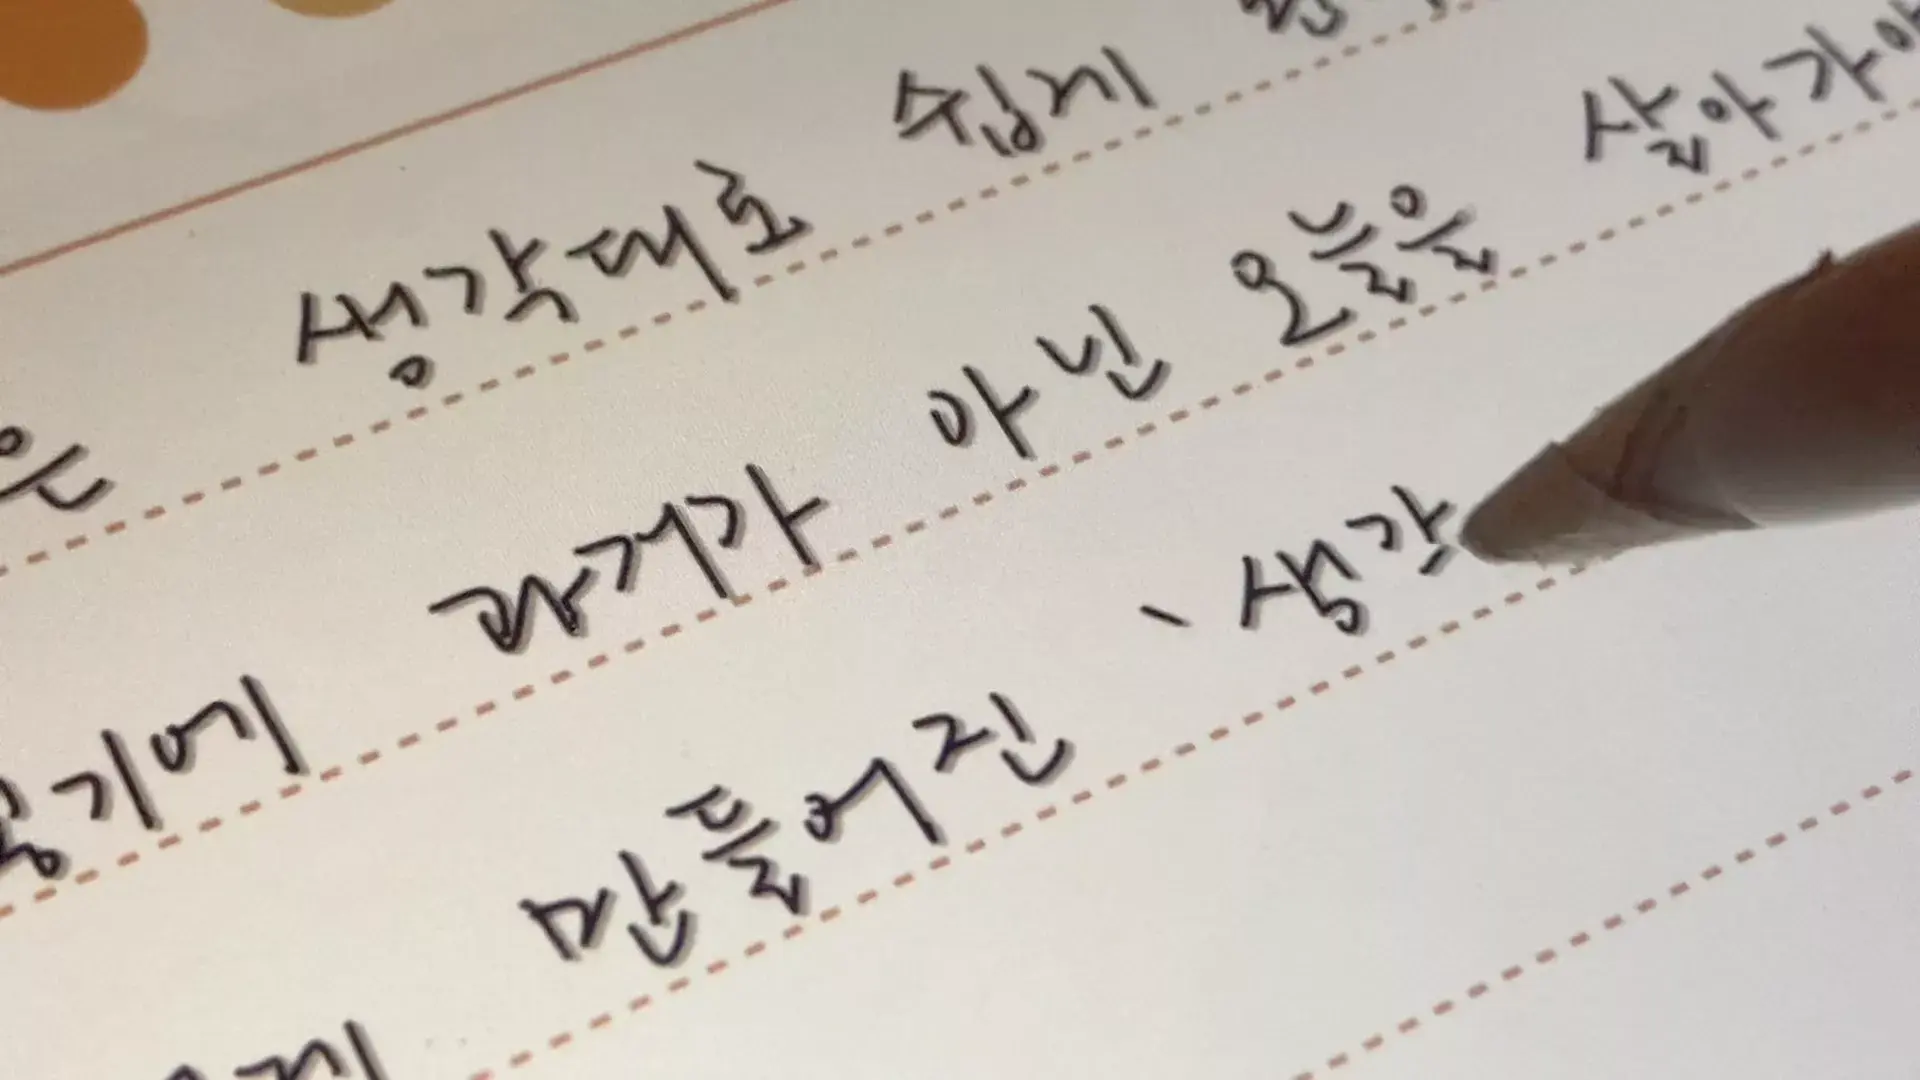 은 생각대로 쉽게
기에 과거가 아닌 오늘을 살아가야
만들어진 、생각
게